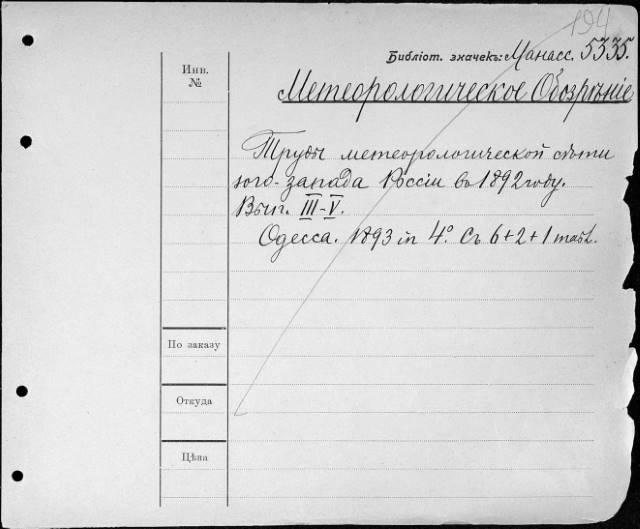 194
Библіот. значекъ: Манасс. 5335.
Инв.
№
Метеорологическое Обозрѣніе
Труды метеорологической сѣти
юго-запада Россіи въ 1892 году.
Вып. III-V.
Одесса. 1893 in 4°. Съ 6+2+1 табл.
По заказу
Откуда
Цѣна